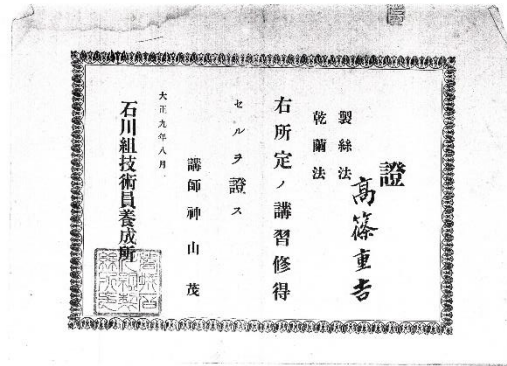 證
高篠重吉
製絲法
乾繭法
右所定ノ講習修得
セルヲ證ス
講師神山茂
大正九年八月
石川組技術員養成所